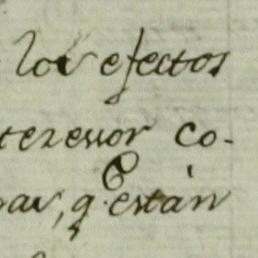 los efectos
teresor co-
pav, q. están